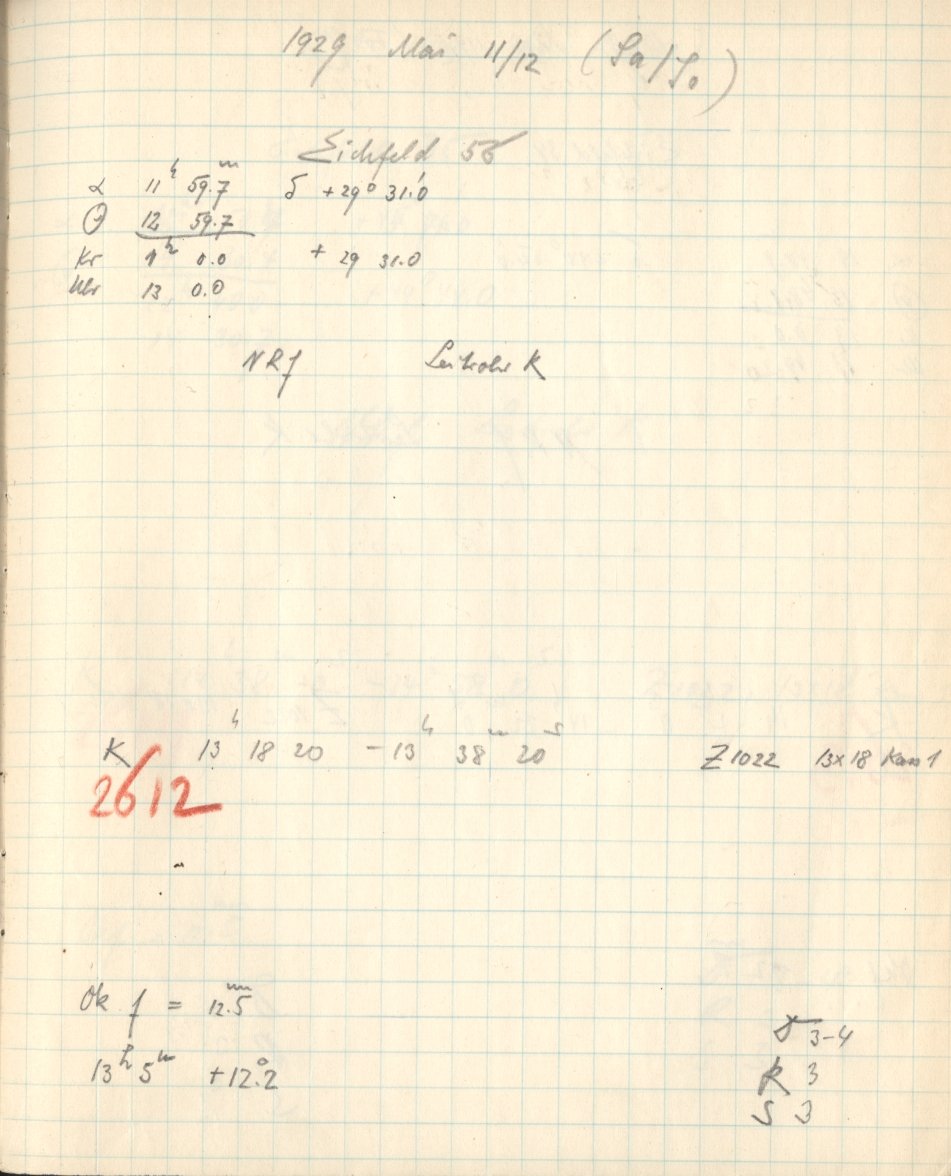 1929 Mai 11/12 (Sa/So)
Eichfeld 56
α 11h 59.7m δ +29° 31.0'
Θ 12 59.7
Kr 1h 0.0 + 29 31.0
Uhr 13 0.0
NRf Leitrohr K
K 13h 18 20 - 13h 38m 20s Z 1022 13x18 Kass 1
2612
Ok f = 12.5mm
13h 5m +12.°2
3-4
R 3
S 3